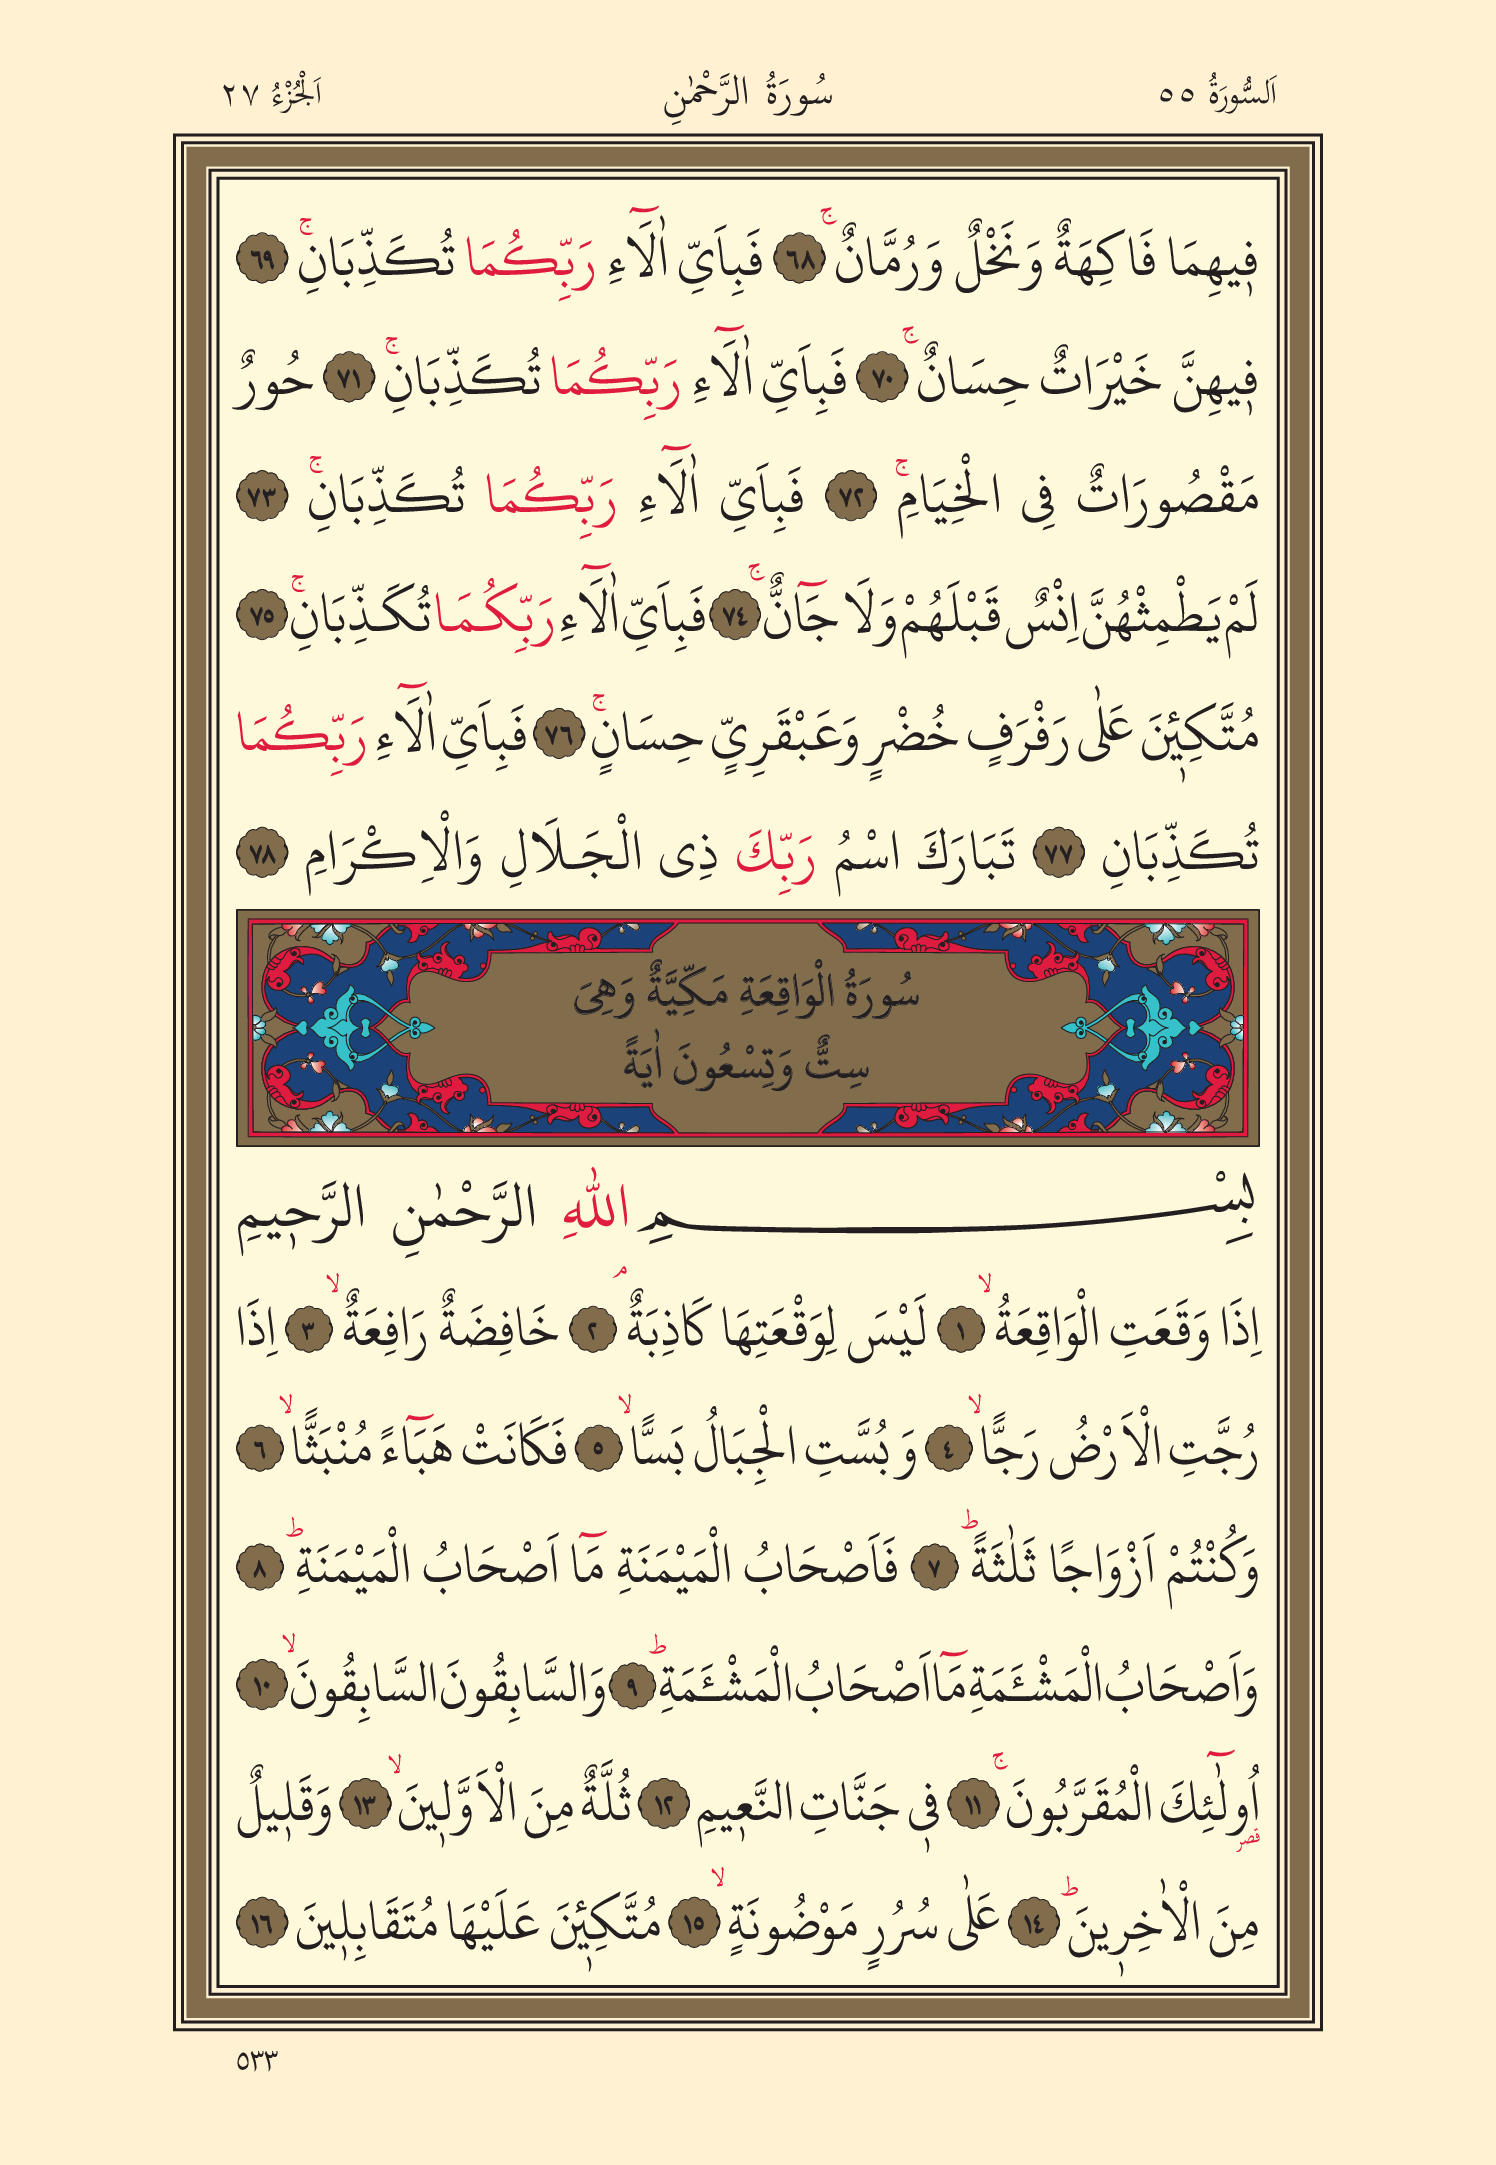 اَلسُّورَةُ ٥٥ سُورَةُ الرَّحْمٰنِ اَلْجُزْءُ ٢٧
فٖيهِمَا فَاكِهَةٌ وَنَخْلٌ وَرُمَّانٌۚ ٦٨ فَبِاَيِّ اٰلَٓاءِ رَبِّكُمَا تُكَذِّبَانِۚ ٦٩
فٖيهِنَّ خَيْرَاتٌ حِسَانٌۚ ٧٠ فَبِاَيِّ اٰلَٓاءِ رَبِّكُمَا تُكَذِّبَانِۚ ٧١ حُورٌ
مَقْصُورَاتٌ فِى الْخِيَامِۚ ٧٢ فَبِاَيِّ اٰلَٓاءِ رَبِّكُمَا تُكَذِّبَانِۚ ٧٣
لَمْ يَطْمِثْهُنَّ اِنْسٌ قَبْلَهُمْ وَلَا جَٓانٌّۚ ٧٤ فَبِاَيِّ اٰلَٓاءِ رَبِّكُمَا تُكَذِّبَانِۚ ٧٥
مُتَّكِـٖٔينَ عَلٰى رَفْرَفٍ خُضْرٍ وَعَبْقَرِيٍّ حِسَانٍۚ ٧٦ فَبِاَيِّ اٰلَٓاءِ رَبِّكُمَا
تُكَذِّبَانِ ٧٧ تَبَارَكَ اسْمُ رَبِّكَ ذِى الْجَلَالِ وَالْاِكْرَامِ ٧٨
سُورَةُ الْوَاقِعَةِ مَكِّيَّةٌ وَهِىَ
سِتٌّ وَتِسْعُونَ اٰيَةً
بِسْمِ اللّٰهِ الرَّحْمٰنِ الرَّحٖيمِ
اِذَا وَقَعَتِ الْوَاقِعَةُۙ ١ لَيْسَ لِوَقْعَتِهَا كَاذِبَةٌۢ ٢ خَافِضَةٌ رَافِعَةٌۙ ٣ اِذَا
رُجَّتِ الْاَرْضُ رَجًّاۙ ٤ وَبُسَّتِ الْجِبَالُ بَسًّاۙ ٥ فَكَانَتْ هَبَٓاءً مُنْبَثًّاۙ ٦
وَكُنْتُمْ اَزْوَاجًا ثَلٰثَةًؕ ٧ فَاَصْحَابُ الْمَيْمَنَةِ مَٓا اَصْحَابُ الْمَيْمَنَةِؕ ٨
وَاَصْحَابُ الْمَشْـَٔمَةِ مَٓا اَصْحَابُ الْمَشْـَٔمَةِؕ ٩ وَالسَّابِقُونَ السَّابِقُونَۙ ١٠
اُولٰٓئِكَ الْمُقَرَّبُونَۚ ١١ فٖى جَنَّاتِ النَّعٖيمِ ١٢ ثُلَّةٌ مِنَ الْاَوَّلٖينَۙ ١٣ وَقَلٖيلٌ
قصر
مِنَ الْاٰخِرٖينَؕ ١٤ عَلٰى سُرُرٍ مَوْضُونَةٍۙ ١٥ مُتَّكِـٖٔينَ عَلَيْهَا مُتَقَابِلٖينَ ١٦
٥٣٣